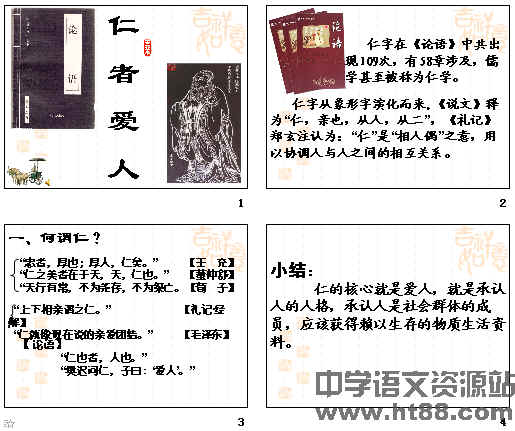 论语
仁者爱人
1
论语
仁字在《论语》中共出
现109次，有58章涉及，儒
学甚至被称为仁学。
仁字从象形字演化而来，《说文》释
为“仁，亲也，从人，从二”，《礼记》
郑玄注认为：“仁”是“相人偶”之意，用
以协调人与人之间的相互关系。
2
一、何谓仁？
“忠者，厚也；厚人，仁矣。” 【王 充】
“仁之美者在于天，天，仁也。” 【董仲舒】
“天行有常，不为尧存，不为桀亡。【荀 子】
“上下相亲谓之仁。” 【礼记·经
解】
“仁就像现在说的亲爱团结。” 【毛泽东】
【论语】
“仁也者，人也。”
“樊迟问仁，子曰：‘爱人’。”
3
小结：
仁的核心就是爱人，就是承认
人的人格，承认人是社会群体的成
员，应该获得赖以生存的物质生活资
料。
4
中学语文资源站
www.ht88.com